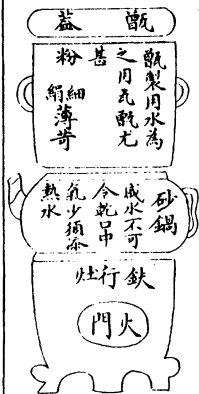 甑蓋
甑製用水為
之用瓦甑尤
甚
粉
細絹薄
砂鍋
咸水不可
令乾口中
氣少須添
熱水
鉄行灶
火門